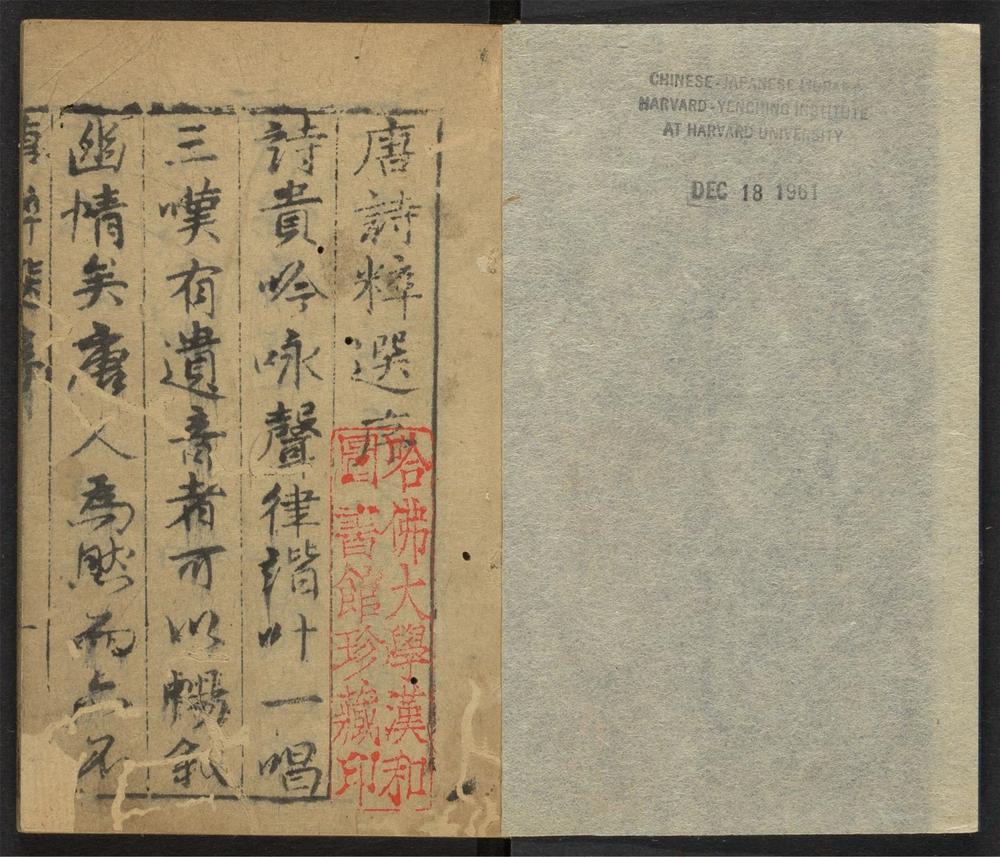 CHINESE-JAPANESE LIBRARY
HARVARD-YENCHING INSTITUTE
AT HARVARD UNIVERSITY
DEC 18 1961
唐詩粹選序
詩貴吟咏聲律諧叶一唱
三嘆有遺音者可以暢敘
幽情矣唐人爲然而亦不
唐粹選序
一
哈佛大學漢和
圖書館珍藏印